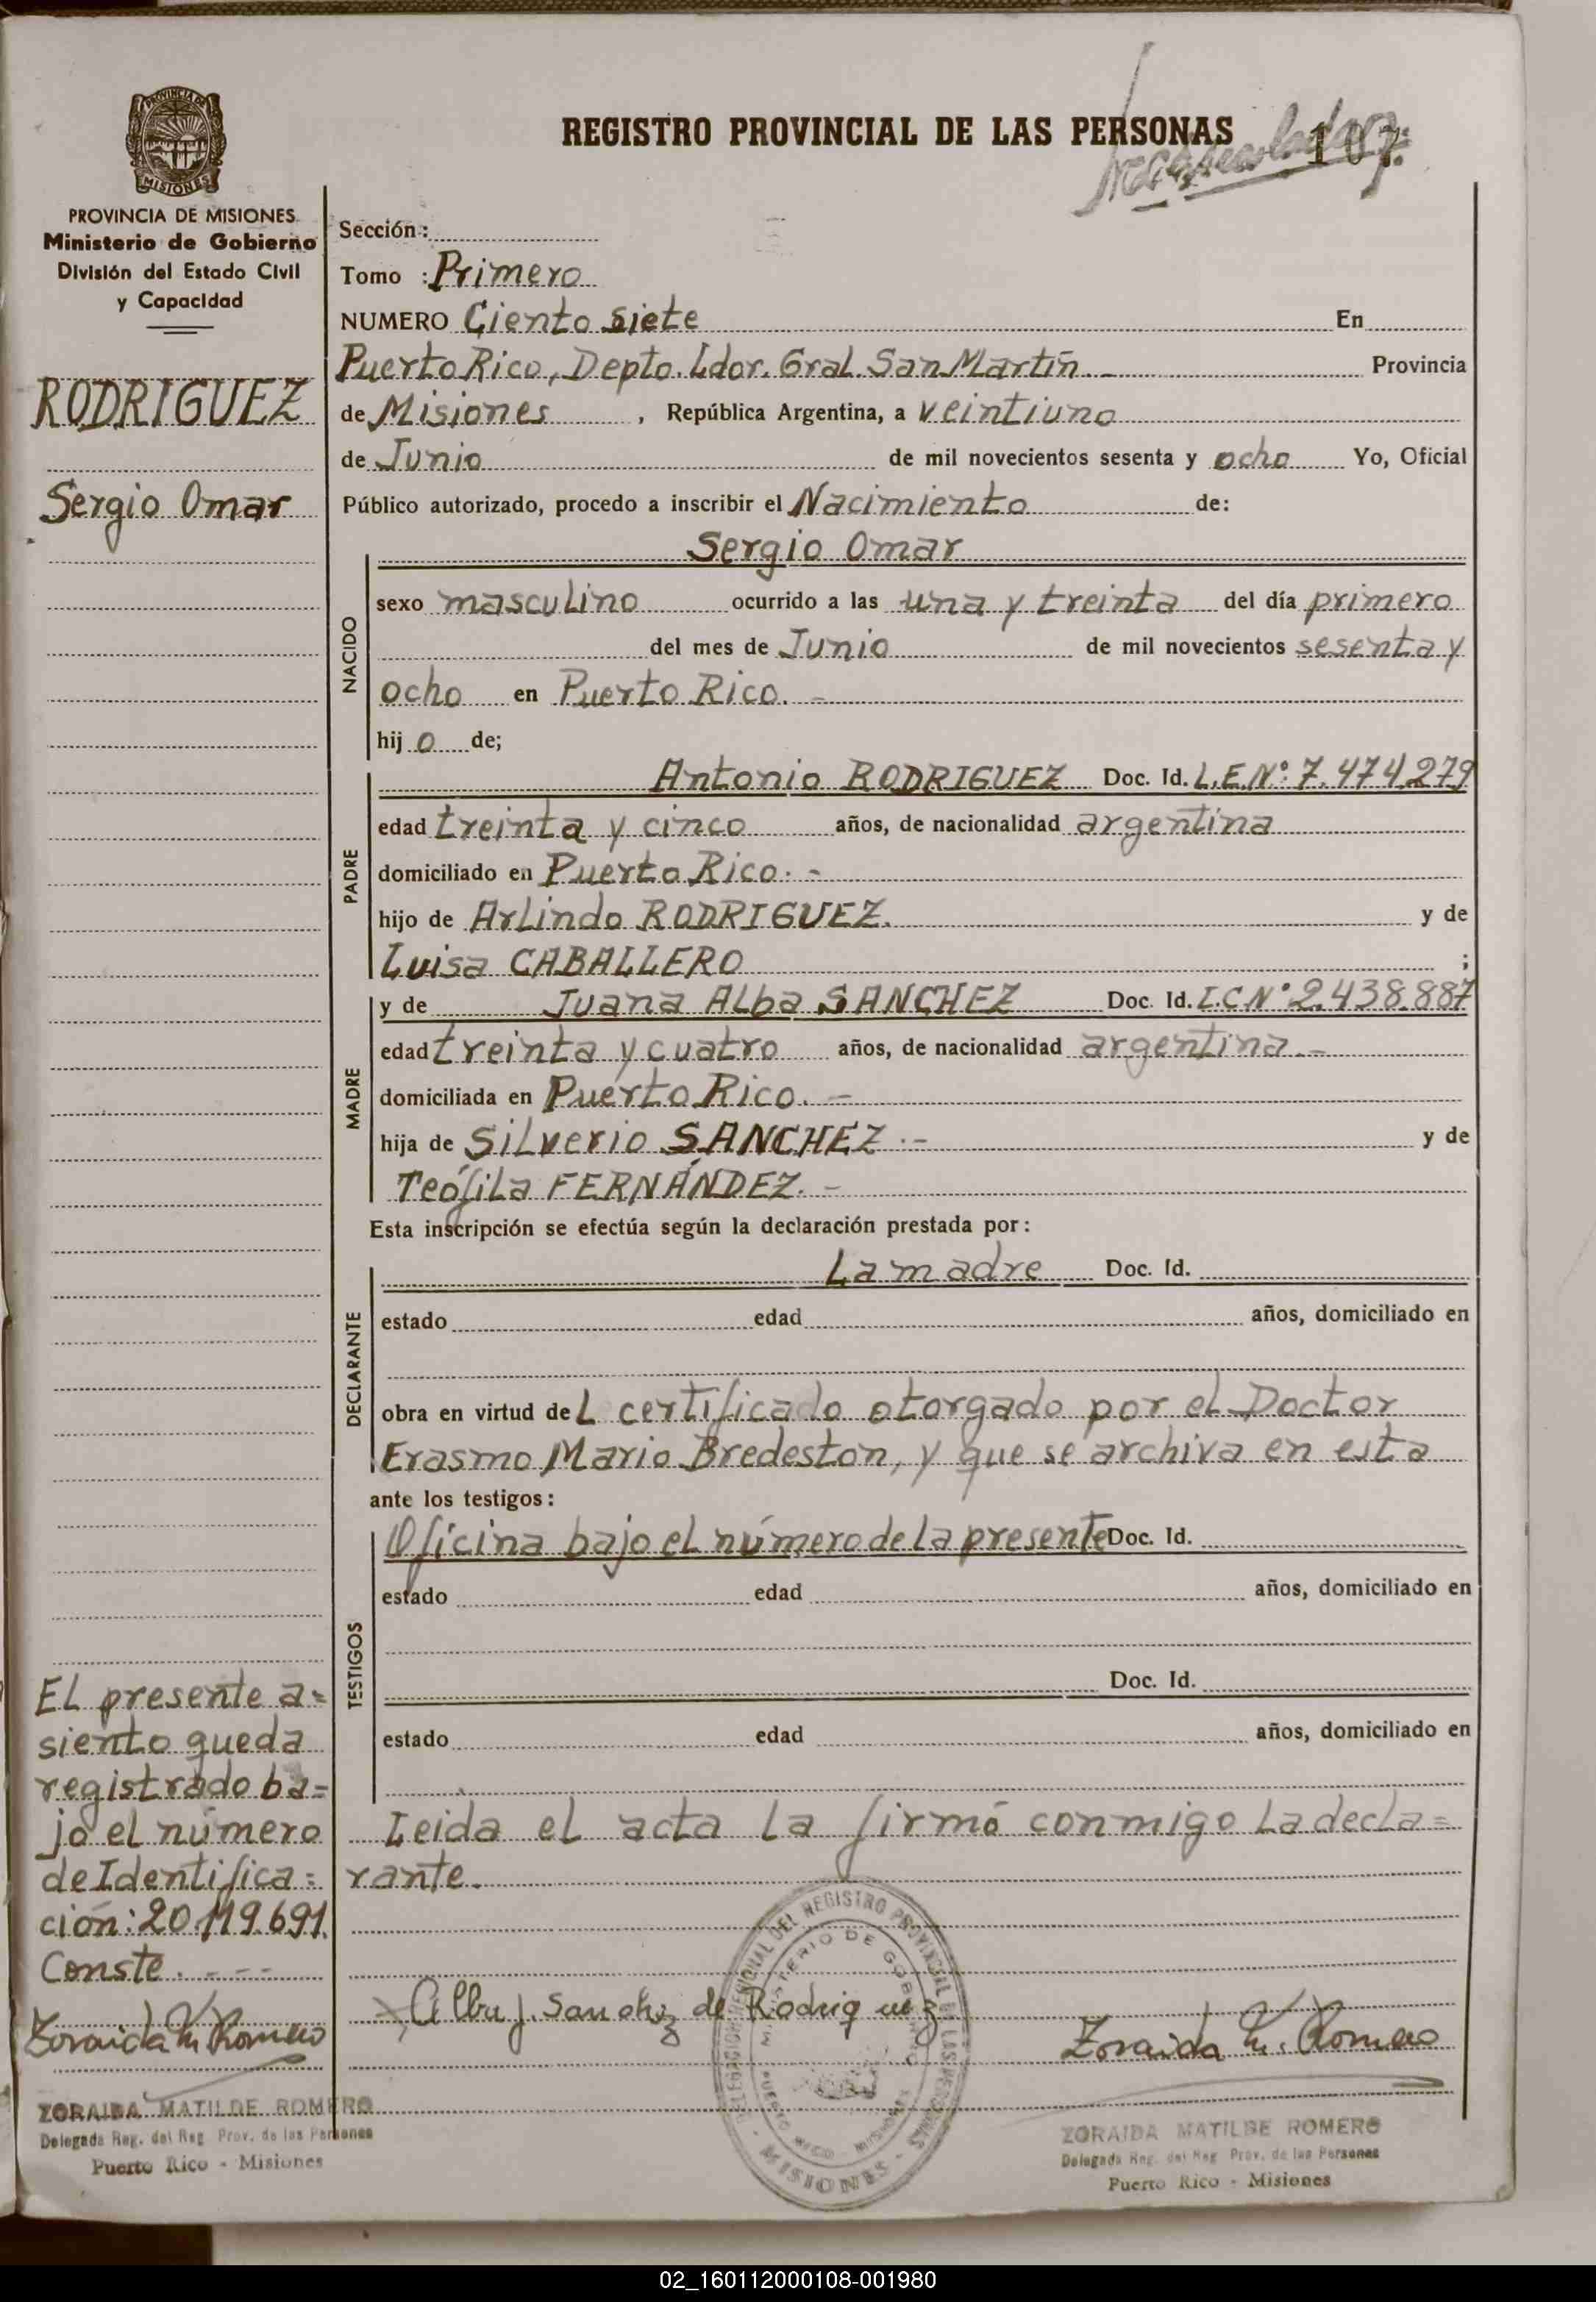 REGISTRO PROVINCIAL DE LAS PERSONAS
107
PROVINCIA DE
MISIONES
PROVINCIA DE MISIONES
Ministerio de Gobierno
División del Estado Civil
y Capacidad
RODRIGUEZ
Sergio Omar
Sección:
Tomo : Primero
NUMERO Ciento siete En
Puerto Rico, Depto. Ldor. Gral. San Martín.- Provincia
de Misiones , República Argentina, a veintiuno
de Junio de mil novecientos sesenta y ocho Yo, Oficial
Público autorizado, procedo a inscribir el Nacimiento de:
NACIDO
Sergio Omar
sexo masculino ocurrido a las una y treinta del día primero
del mes de Junio de mil novecientos sesenta y
ocho en Puerto Rico. -
hij o de;
PADRE
Antonio RODRIGUEZ Doc. Id. L.E.Nº: 7.474.279
edad treinta y cinco años, de nacionalidad argentina
domiciliado en Puerto Rico. -
hijo de Arlindo RODRIGUEZ. y de
Luisa CABALLERO ;
MADRE
y de Juana Alba SANCHEZ Doc. Id. L.C.Nº 2.438.887
edad treinta y cuatro años, de nacionalidad argentina.-
domiciliada en Puerto Rico. -
hija de Silverio SANCHEZ.- y de
Teófila FERNÁNDEZ. -
Esta inscripción se efectúa según la declaración prestada por:
DECLARANTE
La madre Doc. Id.
estado edad años, domiciliado en
obra en virtud del certificado otorgado por el Doctor
Erasmo Mario Bredeston, y que se archiva en esta
ante los testigos:
TESTIGOS
Oficina bajo el número de la presente Doc. Id.
estado edad años, domiciliado en
Doc. Id.
estado edad años, domiciliado en
Leida el acta la firmó conmigo la decla=
rante.
El presente a=
siento queda
registrado ba=
jo el número
de Identifica=
ción: 20.119.691.
Conste. - - -
Zoraida M. Romero
ZORAIDA MATILDE ROMERO
Delegada Reg. del Reg. Prov. de las Personas
Puerto Rico - Misiones
Alba J. Sanchez de Rodriguez
DELEGACION REGIONAL DEL REGISTRO PROVINCIAL DE LAS PERSONAS
- MISIONES -
MINISTERIO DE GOBIERNO
PUERTO RICO MISIONES
Zoraida M. Romero
ZORAIDA MATILDE ROMERO
Delegada Reg. del Reg. Prov. de las Personas
Puerto Rico - Misiones
02_160112000108-001980